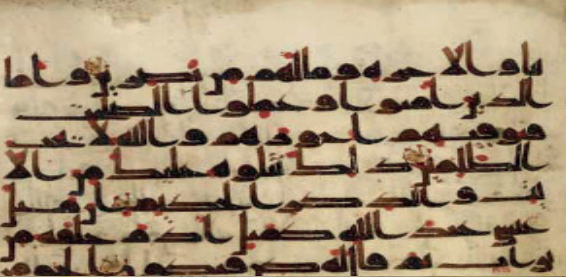 نيا والاخره وما لهم من نصرين واما
الذين امنوا وعملوا الصلحت
فيوفيهم اجورهم والله لا يحب
الظلمين ذلك نتلوه عليك من الا
يت والذكر الحكيم ان مثل
عيسى عند الله كمثل ادم خلقه من
تراب ثم قال له كن فيكون الحق من